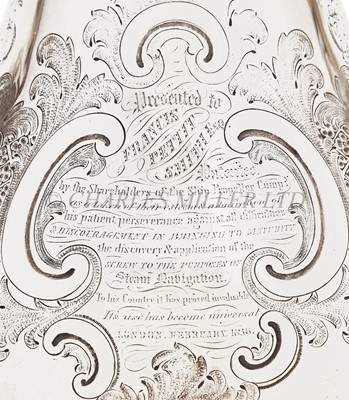 Presented to
FRANCIS
PETTIT
SMITH Esq
Patentee
by the Shareholders of the Ship Propeller Comp.y
his patient perseverance against all difficulties
& DISCOURAGEMENT IN BRINGING TO MATURITY
the discovery & application of the
SCREW TO THE PURPOSES OF
Steam Navigation.
To his Country it has proved invaluable
Its use has become universal
LONDON. FEBRUARY. 1856.